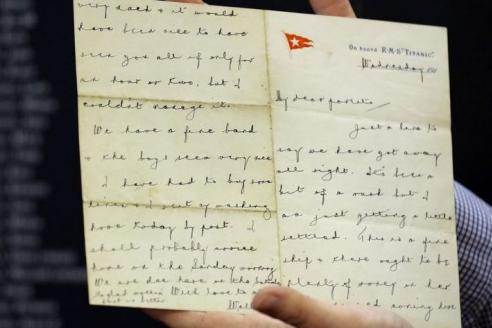 On board R.M.S "TITANIC".
Wednesday
My dear parents
Just a line to
say we have got away
all right. It's been a
bit of a rush but I
am just getting a little
settled. This is a fine
ship & there ought to be
plenty of money on her
missed coming home
very much & it would
have been nice to have
seen you all if only for
an hour or two, but I
couldn't manage it.
We have a fine band
& the boys seem very nice
I have had to buy some
linen & I sent my washing
home today by post. I
shall probably arrive
home on the Sunday morning
We are due here on the Saturday
Glad mother's foot is better. With love to all
Wall